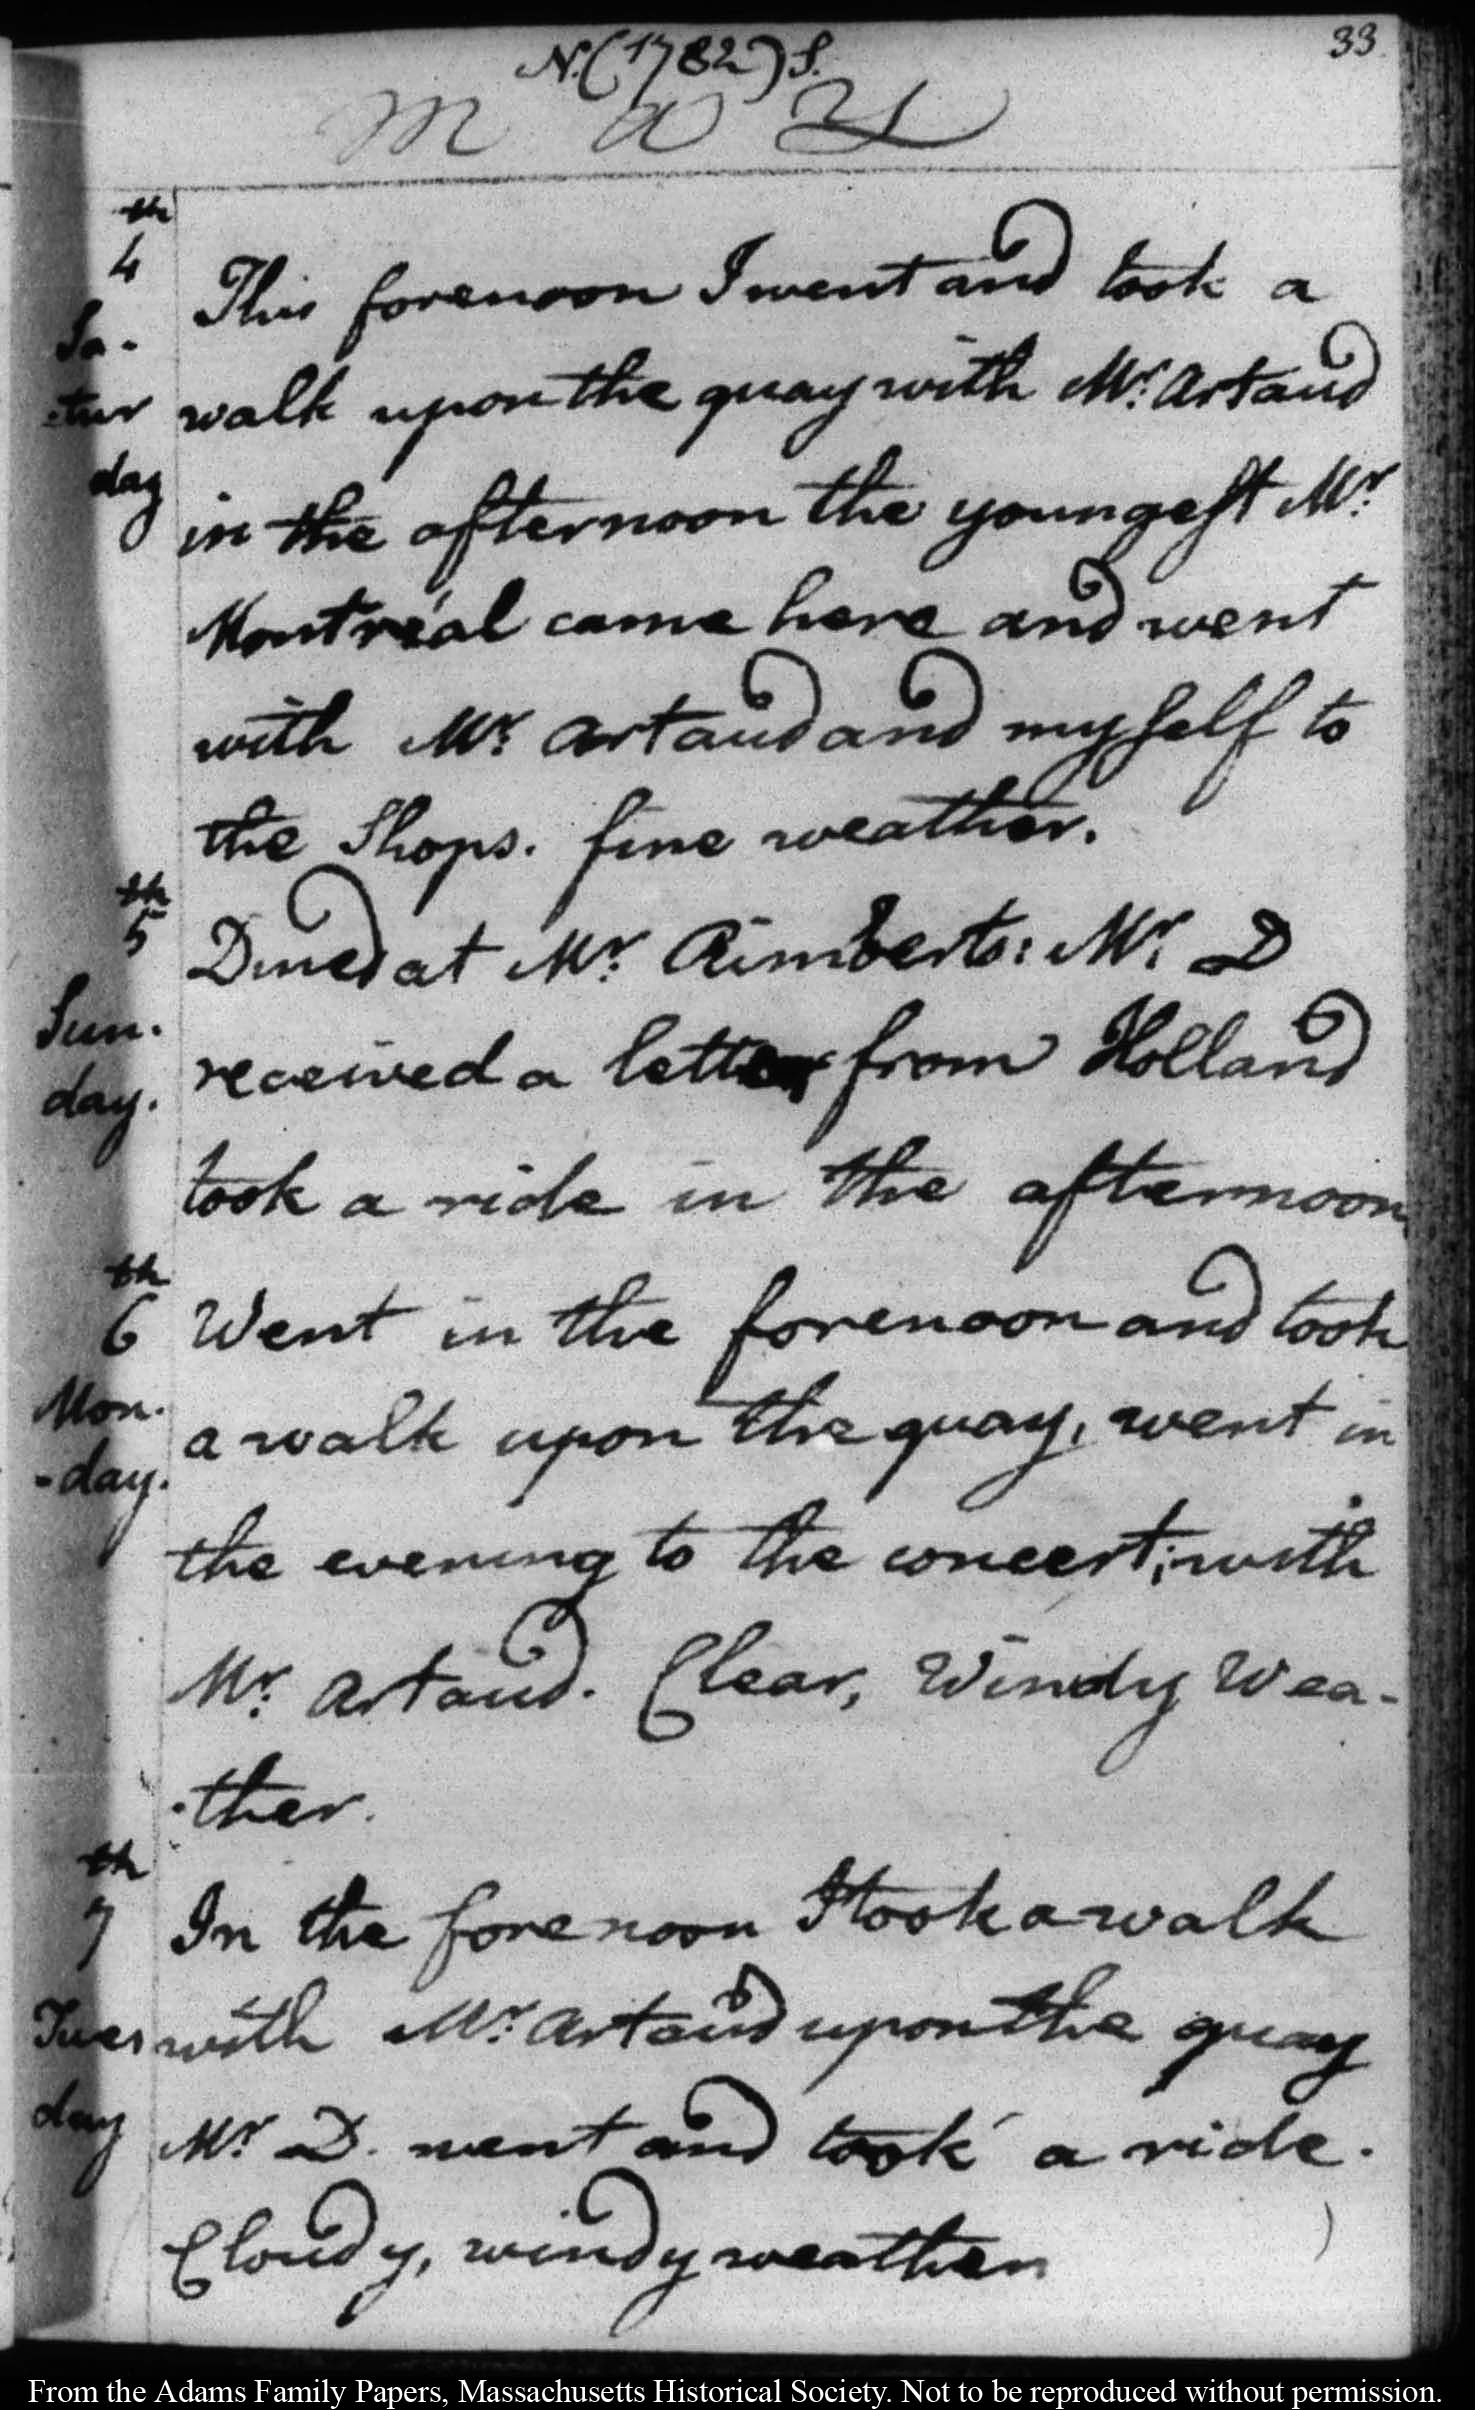 33
N.(1782)S.
May
th
4
Sa-
-tur
day
This forenoon I went and took a
walk upon the quay with Mr. Artaud
in the afternoon the youngest Mr.
Montréal came here and went
with Mr. Artaud and myself to
the Shops. fine weather.
th
5
Sun.
day.
Dined at Mr. Rimberts: Mr. D
received a letter from Holland
took a ride in the afternoon
th
6
Mon.
-day.
Went in the forenoon and took
a walk upon the quay, went in
the evening to the concert; with
Mr. Artaud. Clear, Windy Wea-
-ther.
th
7
Tues
day
In the forenoon I took a walk
with Mr. Artaud upon the quay
Mr. D. went and took a ride.
Cloudy, windy weather
From the Adams Family Papers, Massachusetts Historical Society. Not to be reproduced without permission.